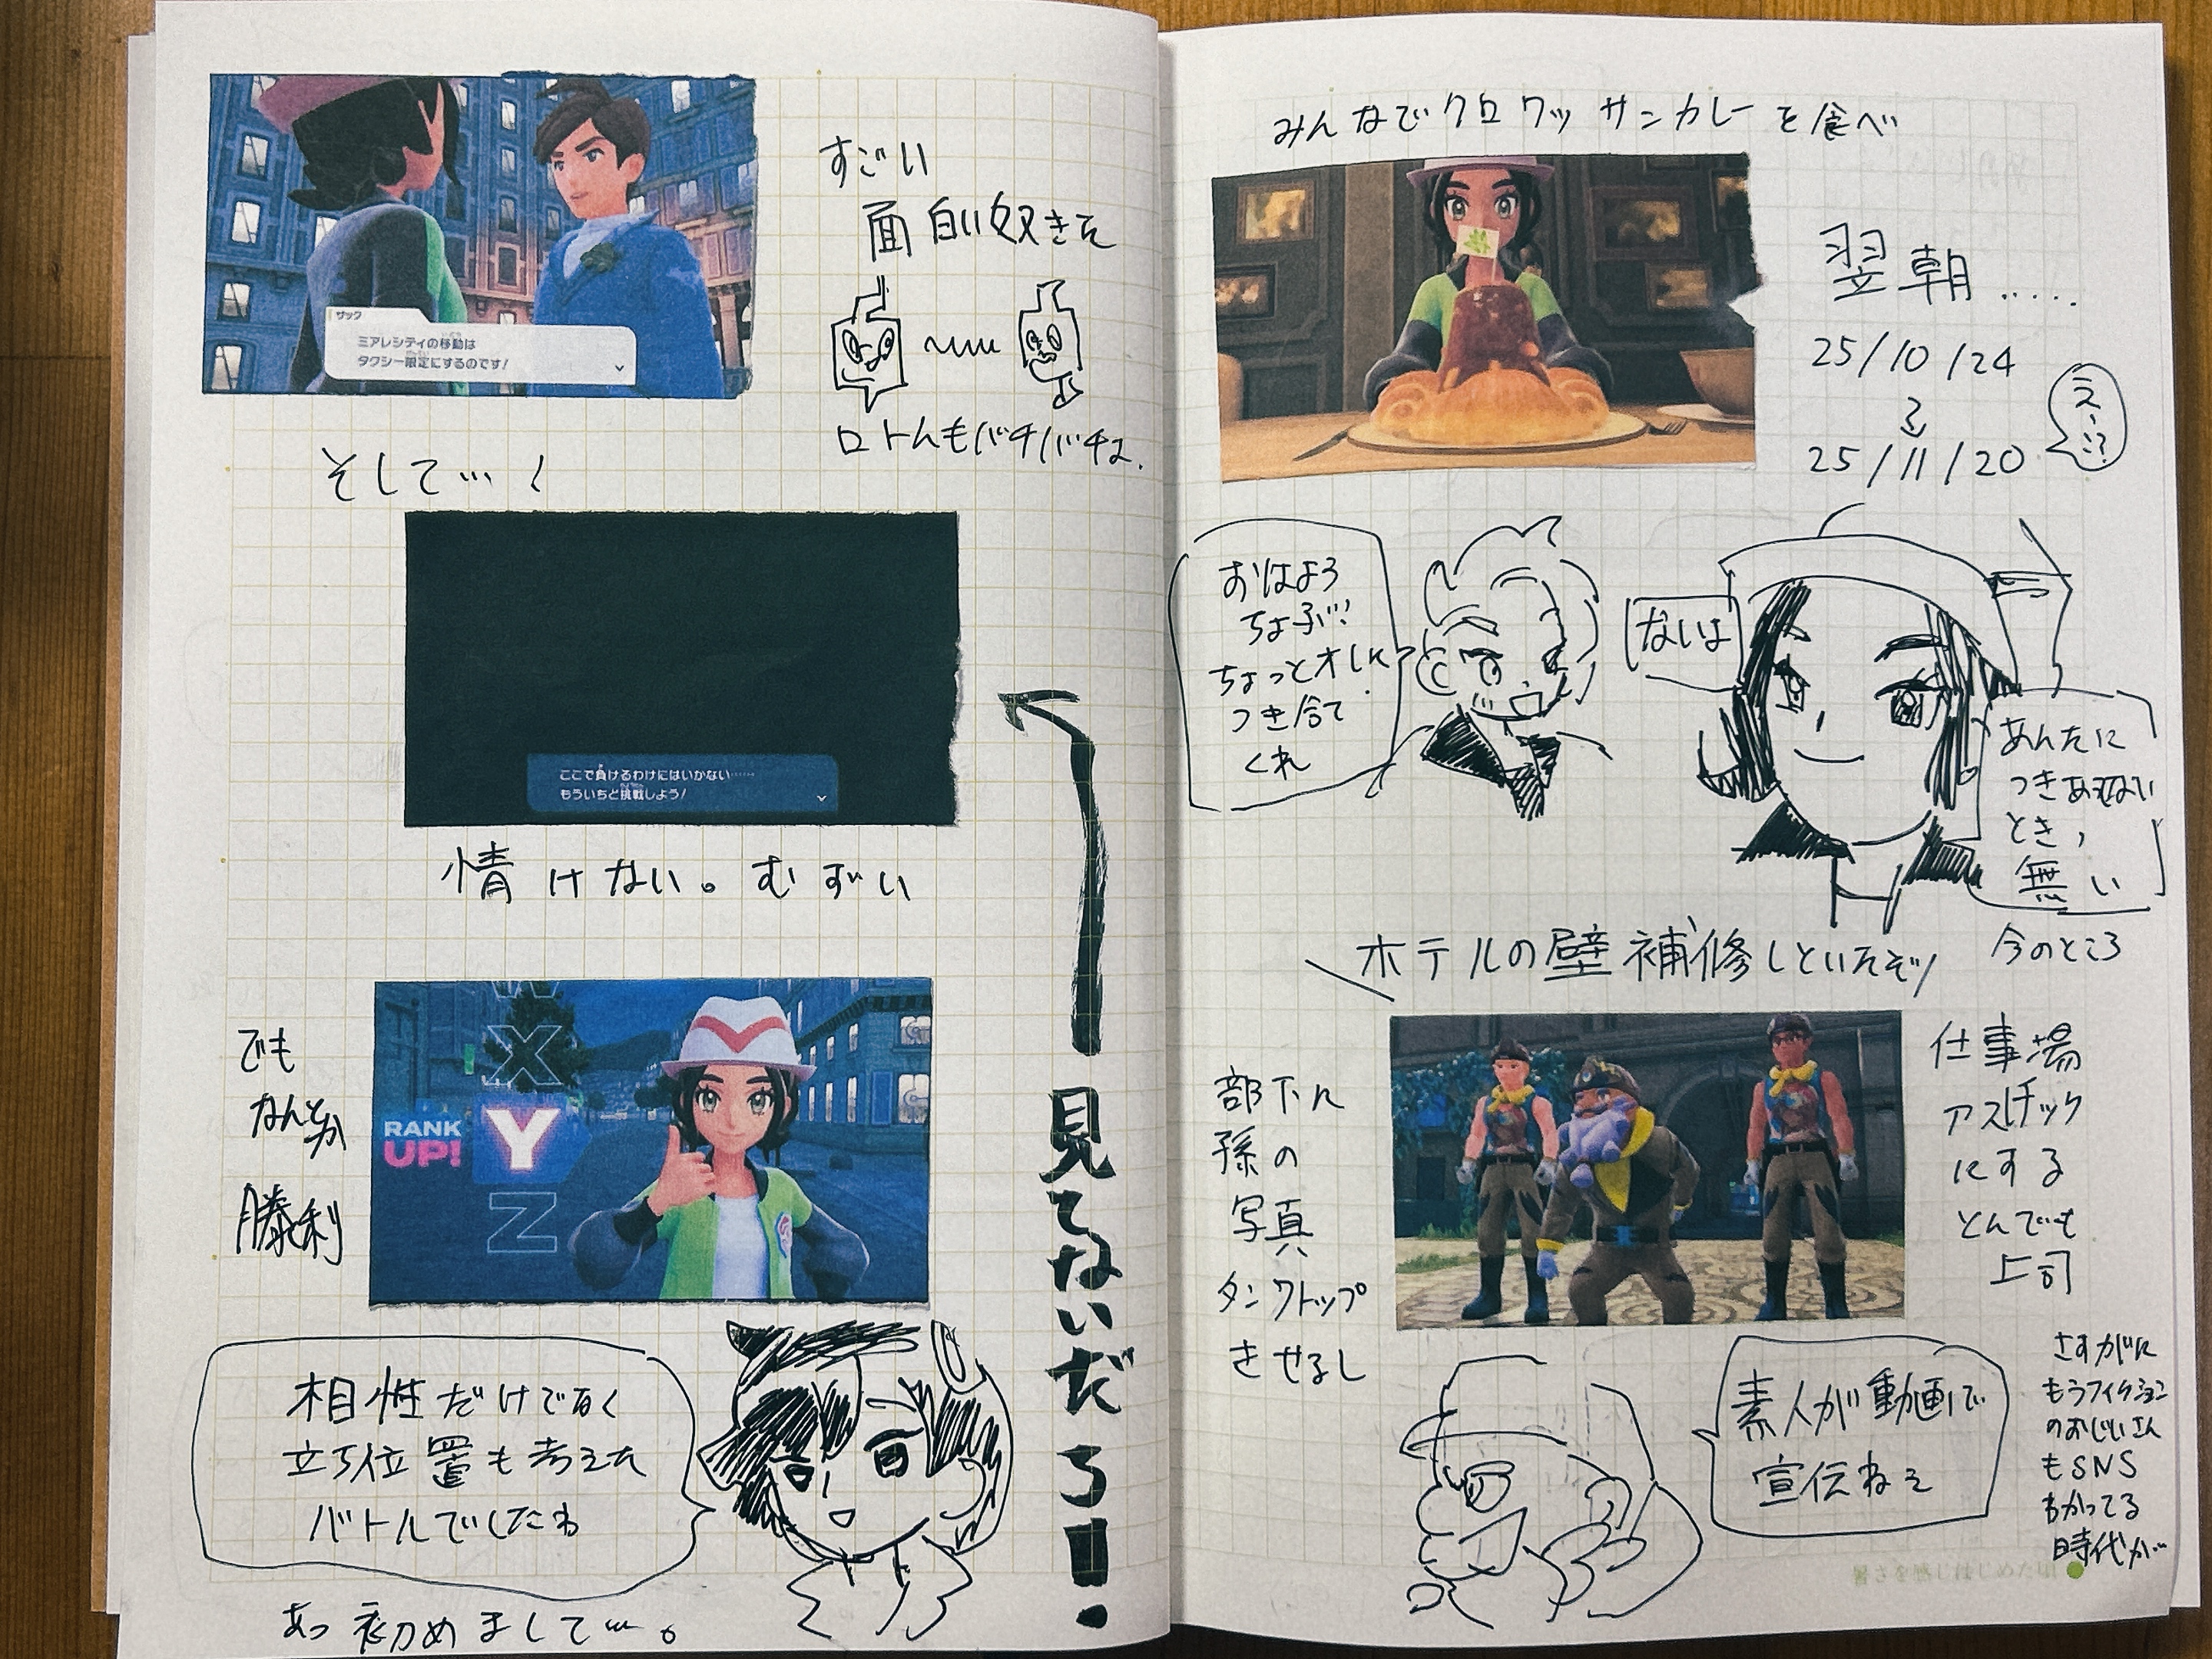 サック
ミアレシティの移動は
タクシー限定にするのです!
すごい
面白い奴きた
ロトムもバチバチよ.
そして…!
ここで負けるわけにはいかない……
もういちど挑戦しよう!
情けない。むずい
見てないだろ!
でも
なんとか
勝利
RANK
UP!
X
Y
Z
相性だけでなく
立ち位置も考えた
バトルでしたね
あっ初めまして…。
みんなでクロワッサンカレーを食べ
翌朝.....
25/10/24
25/11/20
えーい?
おはよう
ちょぶ!!
ちょっとオレに
つき合て
くれ
ないは
あんたに
つきあえない
とき,
無い
今のところ
ホテルの壁補修しといたぞ
部下に
孫の
写真
タンクトップ
させるし
仕事場
アスレチック
にする
とんでも
上司
素人が動画で
宣伝ねえ
さすがに
もうフィクション
のおじいさん
もSNS
わかってる
時代か…